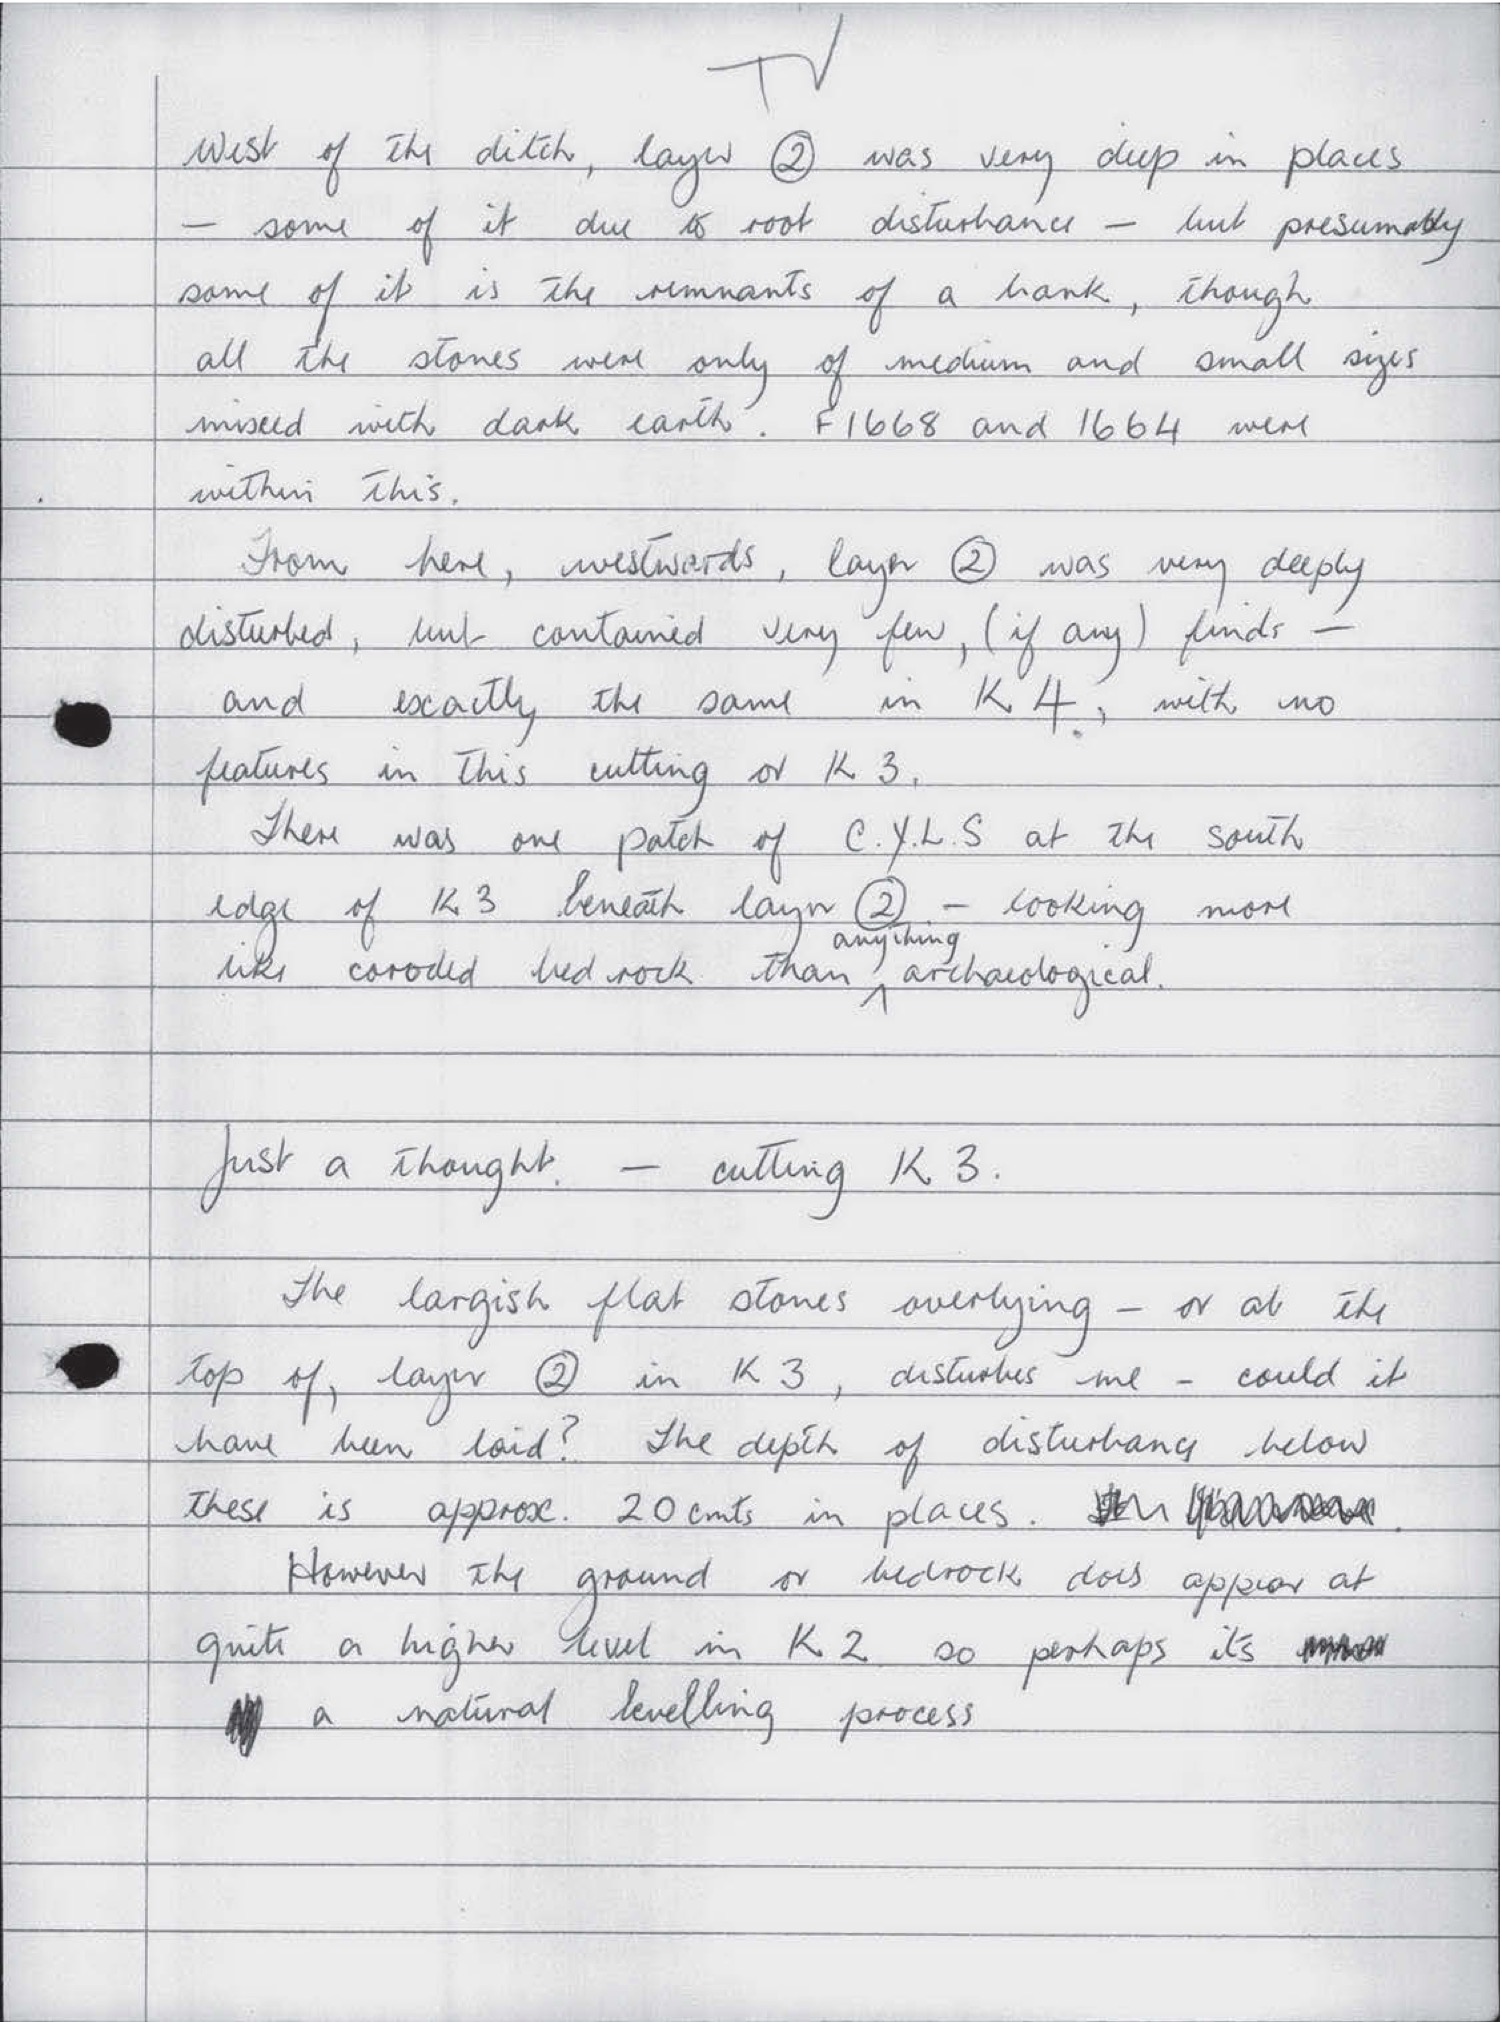 TV
West of the ditch, layer ② was very deep in places
— some of it due to root disturbance — but presumably
some of it is the remnants of a bank, though
all the stones were only of medium and small sizes
mixed with dark earth. F1668 and 1664 were
within this.
From here, westwards, layer ② was very deeply
disturbed, but contained very few, (if any) finds —
and exactly the same in K4, with no
features in this cutting or K3.
There was one patch of C.Y.L.S at the south
edge of K3 beneath layer ② - looking more
anything
like coroded bedrock than ^ archaeological.
Just a thought. — cutting K3.
The largish flat stones overlying - or at the
top of, layer ② in K3, disturbes me - could it
have been laid? The depth of disturbance below
these is approx. 20cmts in places.
However the ground or bedrock does appear at
quite a higher level in K2 so perhaps its
a natural levelling process